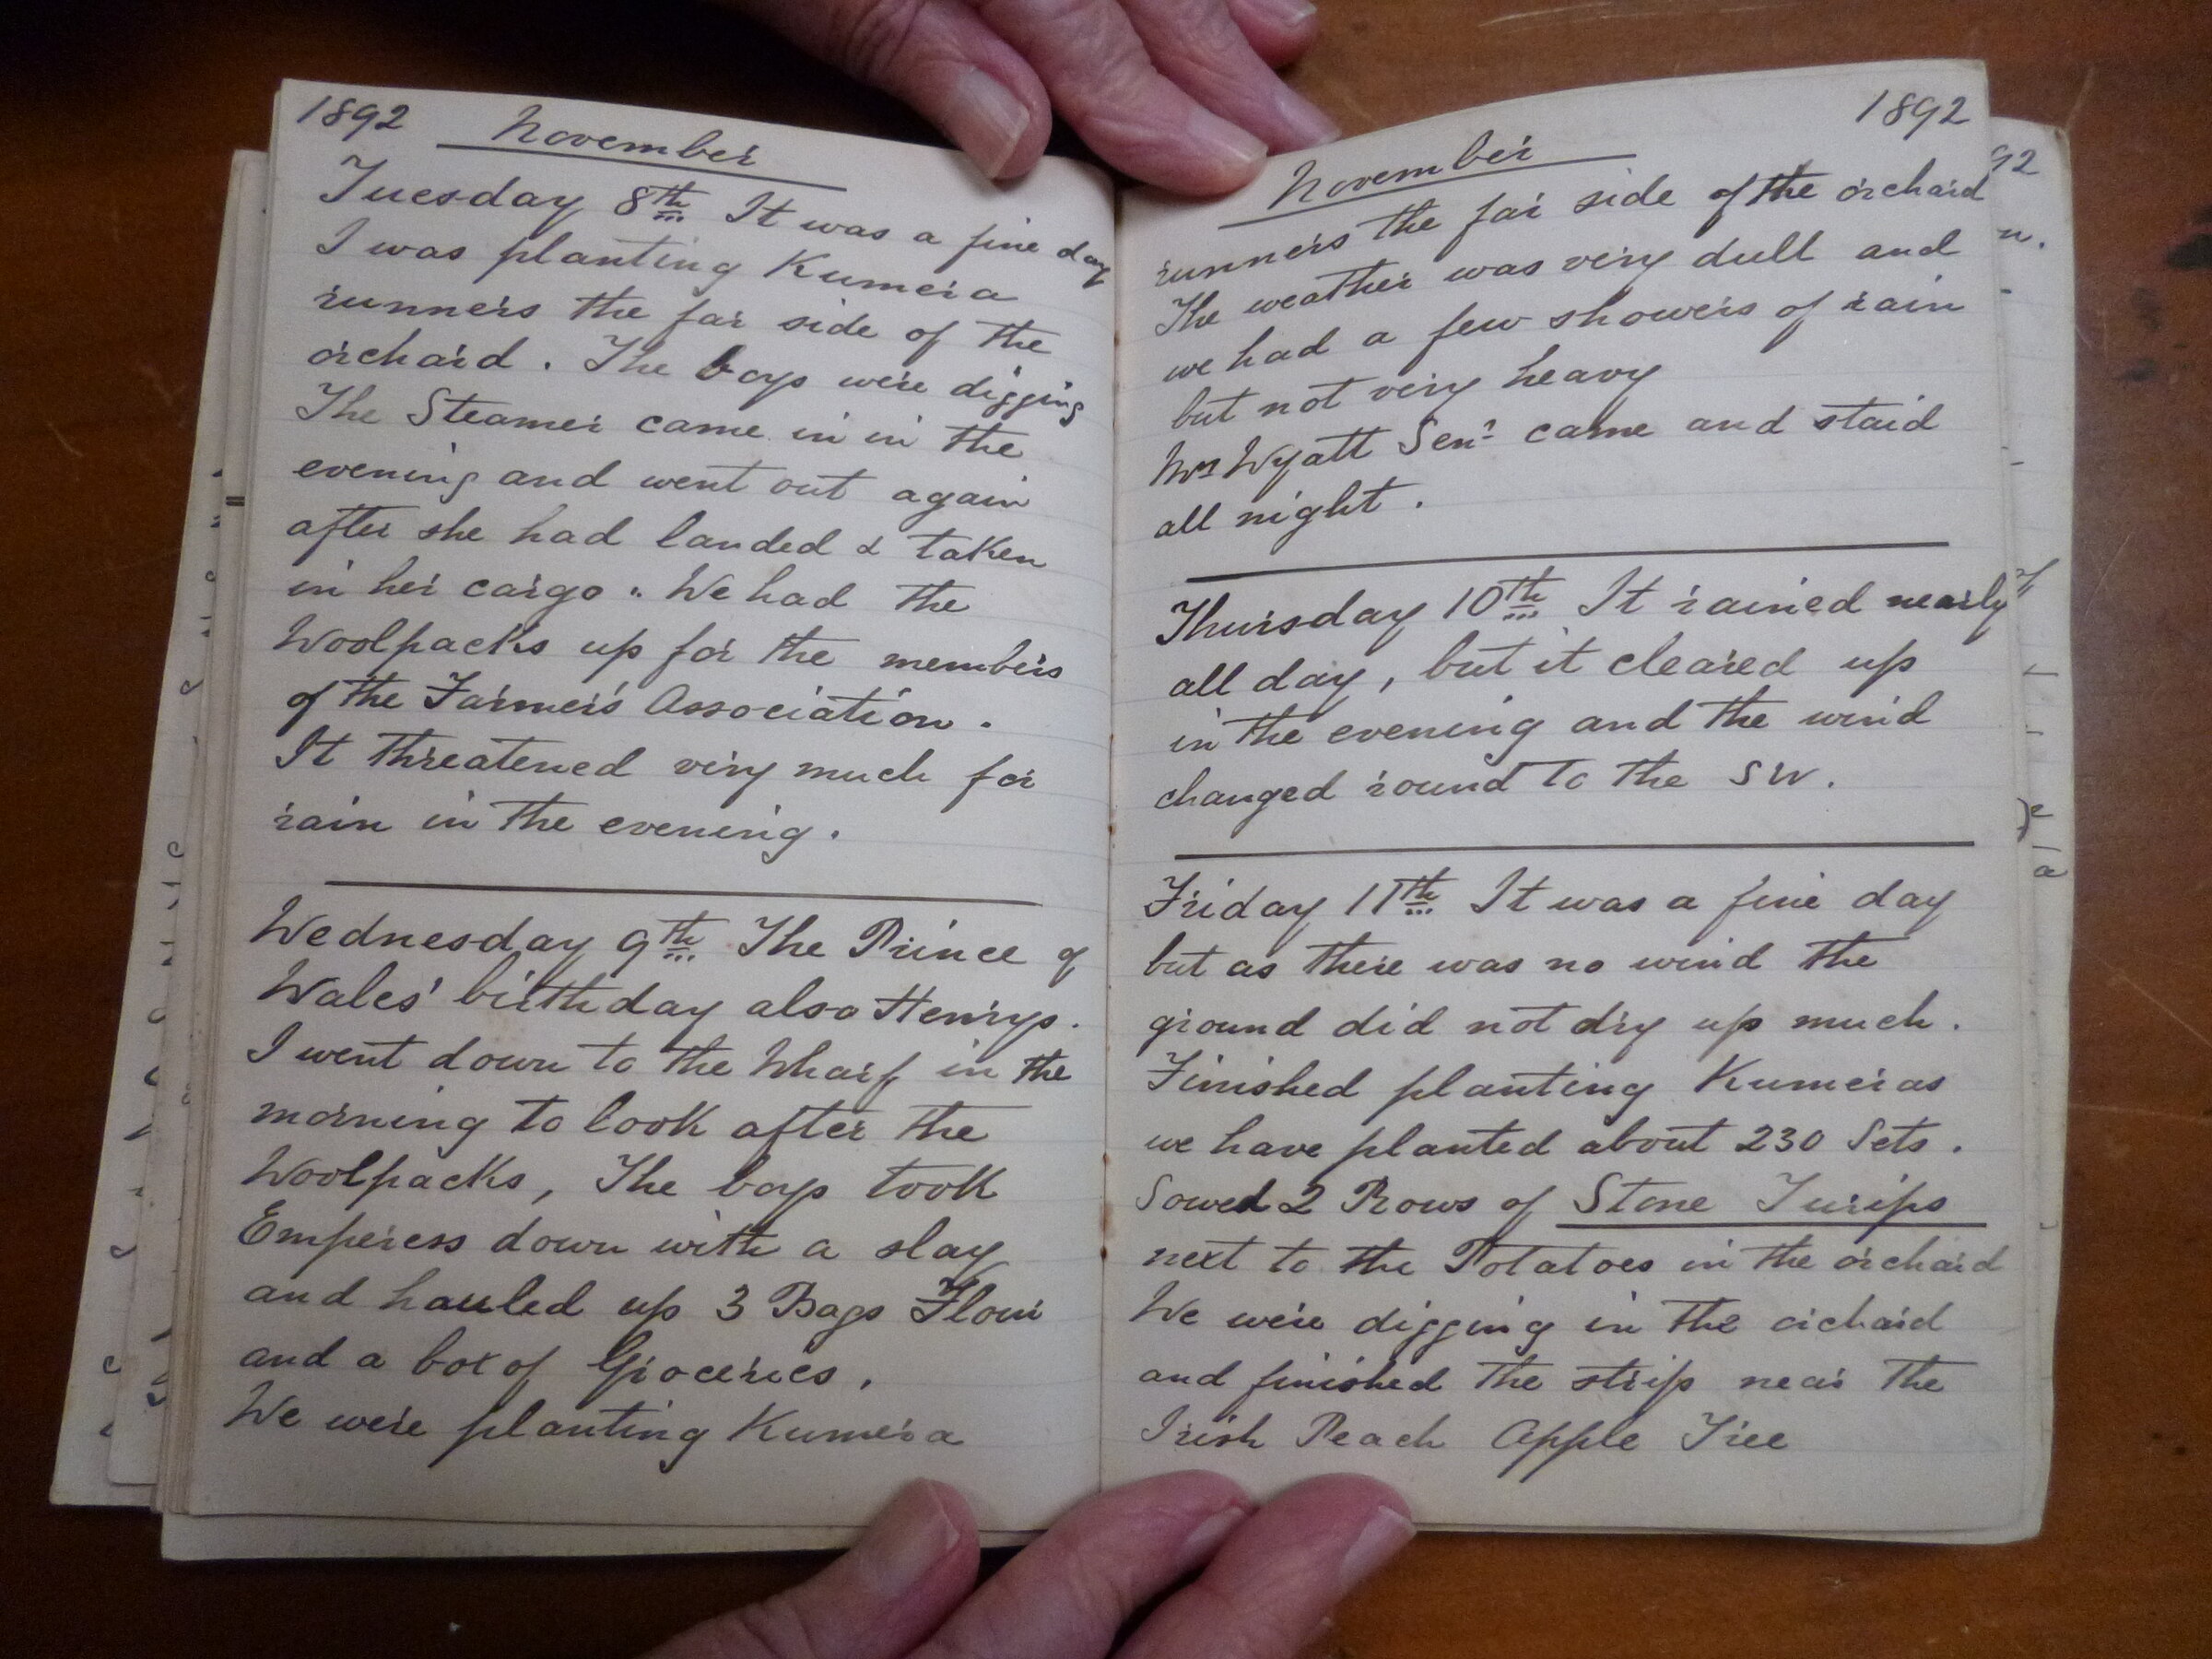 1892 November
Tuesday 8th It was a fine day
I was planting Kumera
runners the far side of the
orchard. The boys were digging
The Steamer came in in the
evening and went out again
after she had landed & taken
in her cargo. We had the
Woolpacks up for the members
of the Farmer's Association.
It threatened very much for
rain in the evening.
Wednesday 9th The Prince of
Wales' birthday also Henrys.
I went down to the Wharf in the
morning to look after the
Woolpacks, The boys took
Emperess down with a slay
and hauled up 3 Bags Flour
and a box of Groceries.
We were planting Kumera
1892
November
runners the far side of the orchard
The weather was very dull and
we had a few showers of rain
but not very heavy
Mrs Wyatt Senr came and staid
all night.
Thursday 10th It rained nearly
all day, but it cleared up
in the evening and the wind
changed round to the SW.
Friday 11th It was a fine day
but as there was no wind the
ground did not dry up much.
Finished planting Kumeras
we have planted about 230 Sets.
Sowed 2 Rows of Stone Turips
next to the Potatoes in the orchard
We were digging in the orchard
and finished the strip near the
Irish Peach Apple Tree
92